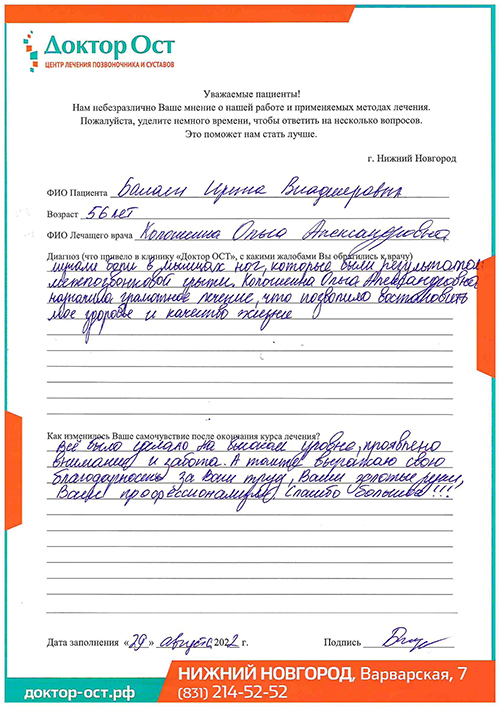 Доктор Ост
ЦЕНТР ЛЕЧЕНИЯ ПОЗВОНОЧНИКА И СУСТАВОВ
Уважаемые пациенты!
Нам небезразлично Ваше мнение о нашей работе и применяемых методах лечения.
Пожалуйста, уделите немного времени, чтобы ответить на несколько вопросов.
Это поможет нам стать лучше.
г. Нижний Новгород
ФИО Пациента Ирина Владимировна
Возраст 56 лет
ФИО Лечащего врача Колошеина Ольга Александровна
Диагноз (что привело в клинику «Доктор ОСТ», с какими жалобами Вы обратились к врачу)
боли в мышцах ног, которые были результатом
межпозвонковой грыжи. Колошеина Ольга Александровна
назначила грамотное лечение, что позволило востановить
мое здоровье и качество жизни
Как изменилось Ваше самочувствие после окончания курса лечения?
Всё было сделано на высоком уровне, проявлено
внимание и забота. А также выражаю свою
благодарность за Ваш труд, Ваши золотые руки,
Ваш профессионализм. Спасибо большое!!!
Дата заполнения «29» августа 2022 г.
Подпись
доктор-ост.рф
НИЖНИЙ НОВГОРОД, Варварская, 7
(831) 214-52-52